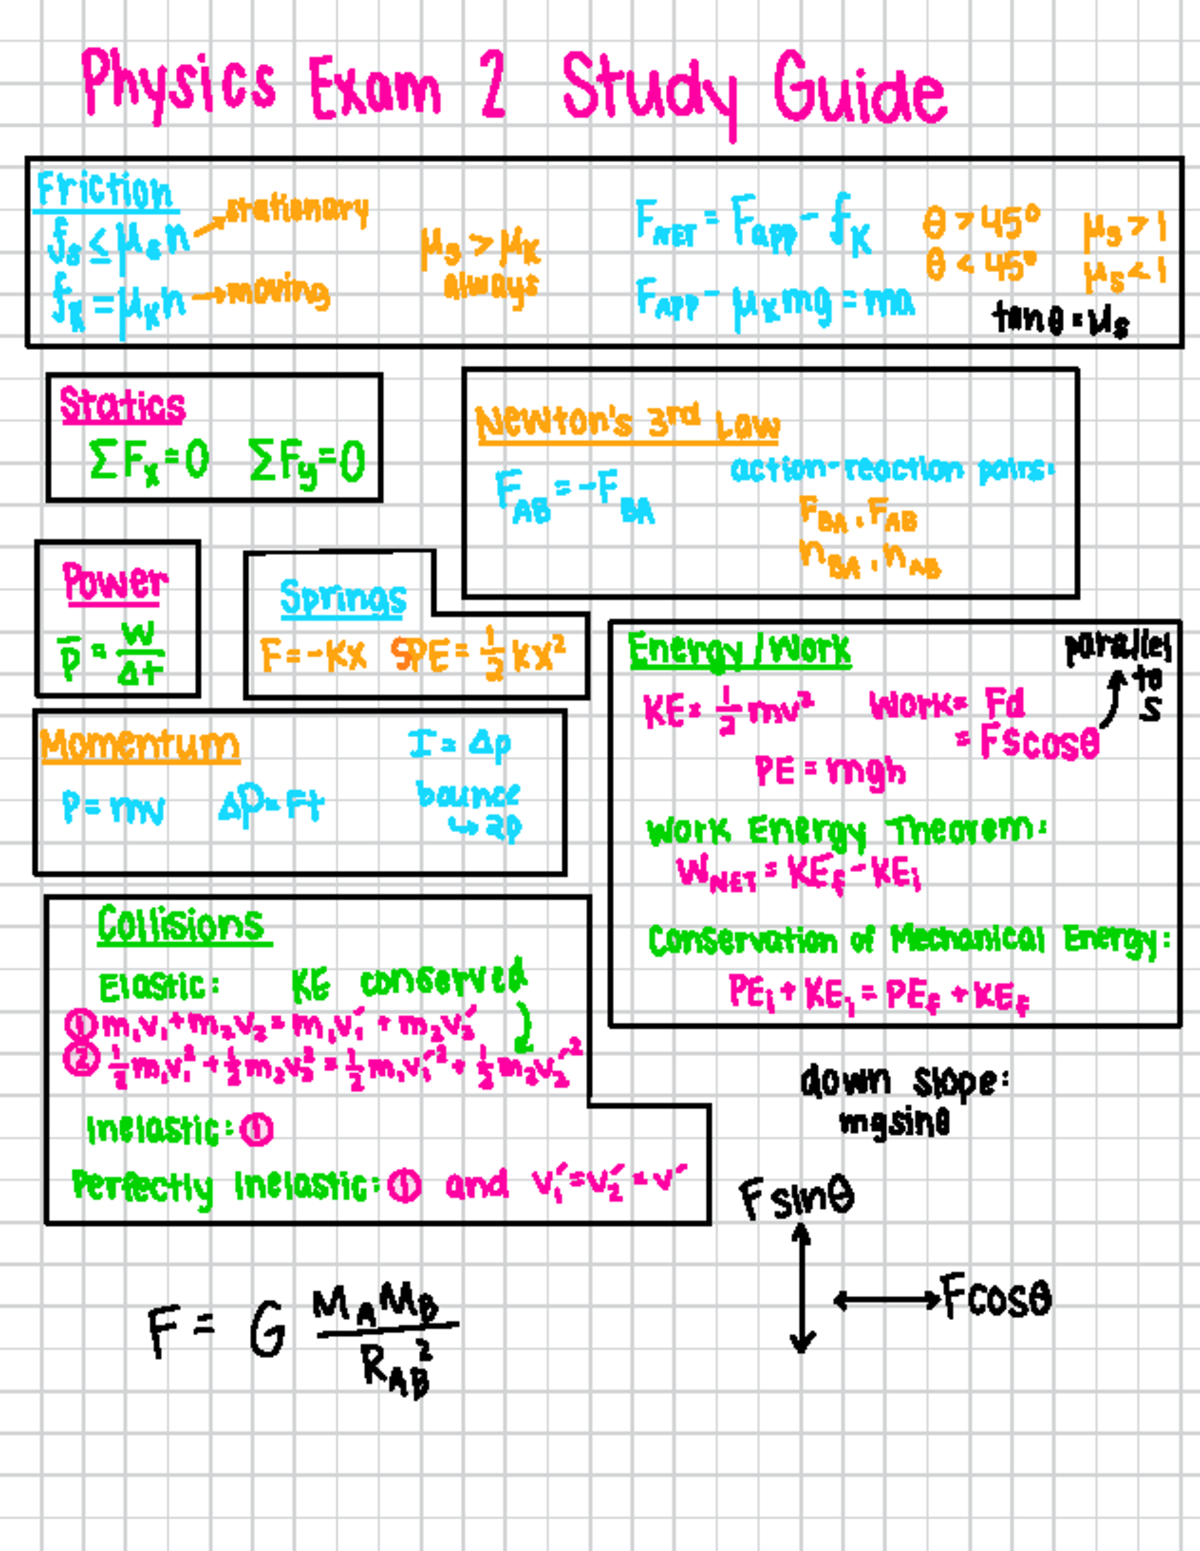 Physics Exam 2 Study Guide
Friction
fs ≤ μsn → stationary
fk = μkn → moving
μs > μk
always
FNET = Fapp - fk
FAPP - μkmg = ma
θ > 45° μs > 1
θ < 45° μs < 1
tanθ = μs
Statics
ΣFx = 0 ΣFy = 0
Newton's 3rd Law
FAB = -FBA
action-reaction pairs:
FBA , FAB
nBA , nAB
Power
p̄ = W/Δt
Springs
F = -Kx SPE = ½kx²
Energy/Work
KE = ½mv²
Work = Fd
= Fscosθ
parallel
to
s
PE = mgh
Work Energy Theorem:
WNET = KEf - KEi
Conservation of Mechanical Energy:
PEi + KEi = PEf + KEf
Momentum
P = mv Δp = Ft
I = Δp
bounce
↳ 2p
Collisions
Elastic: KE conserved
① m₁v₁ + m₂v₂ = m₁v₁' + m₂v₂'
② ½m₁v₁² + ½m₂v₂² = ½m₁v₁'² + ½m₂v₂'²
Inelastic: ①
Perfectly Inelastic: ① and v₁' = v₂' = v'
down slope:
mgsinθ
Fsinθ
Fcosθ
F = G MAMB/RAB²